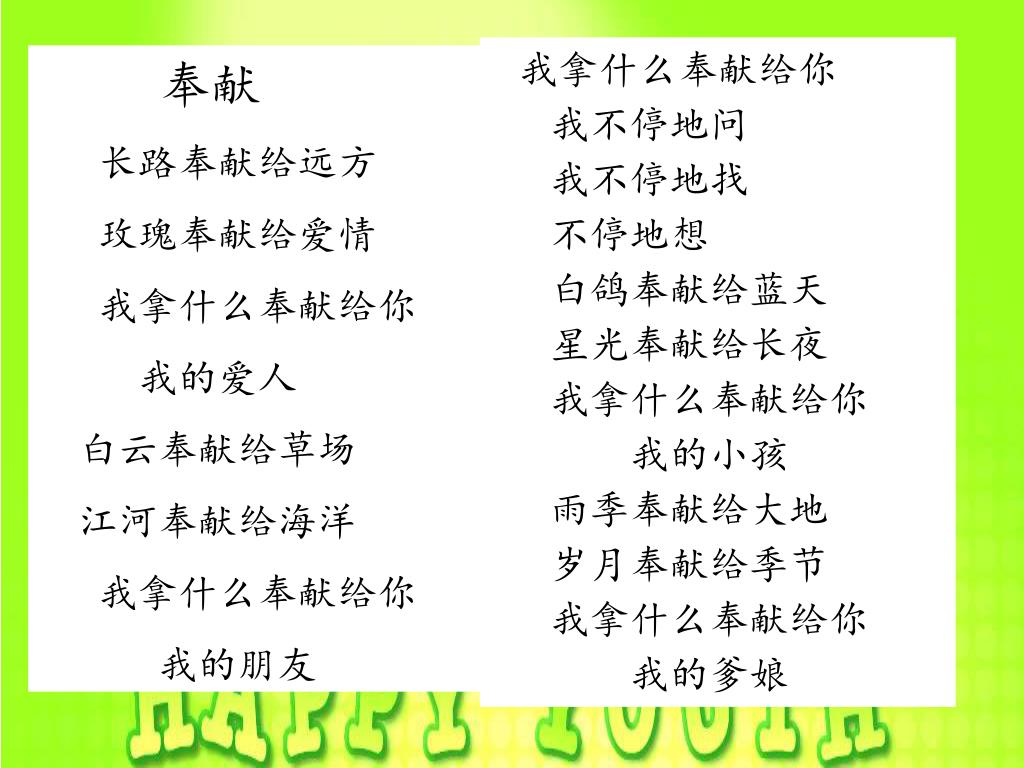 奉献
长路奉献给远方
玫瑰奉献给爱情
我拿什么奉献给你
我的爱人
白云奉献给草场
江河奉献给海洋
我拿什么奉献给你
我的朋友
我拿什么奉献给你
我不停地问
我不停地找
不停地想
白鸽奉献给蓝天
星光奉献给长夜
我拿什么奉献给你
我的小孩
雨季奉献给大地
岁月奉献给季节
我拿什么奉献给你
我的爹娘
HAPPY YOUTH